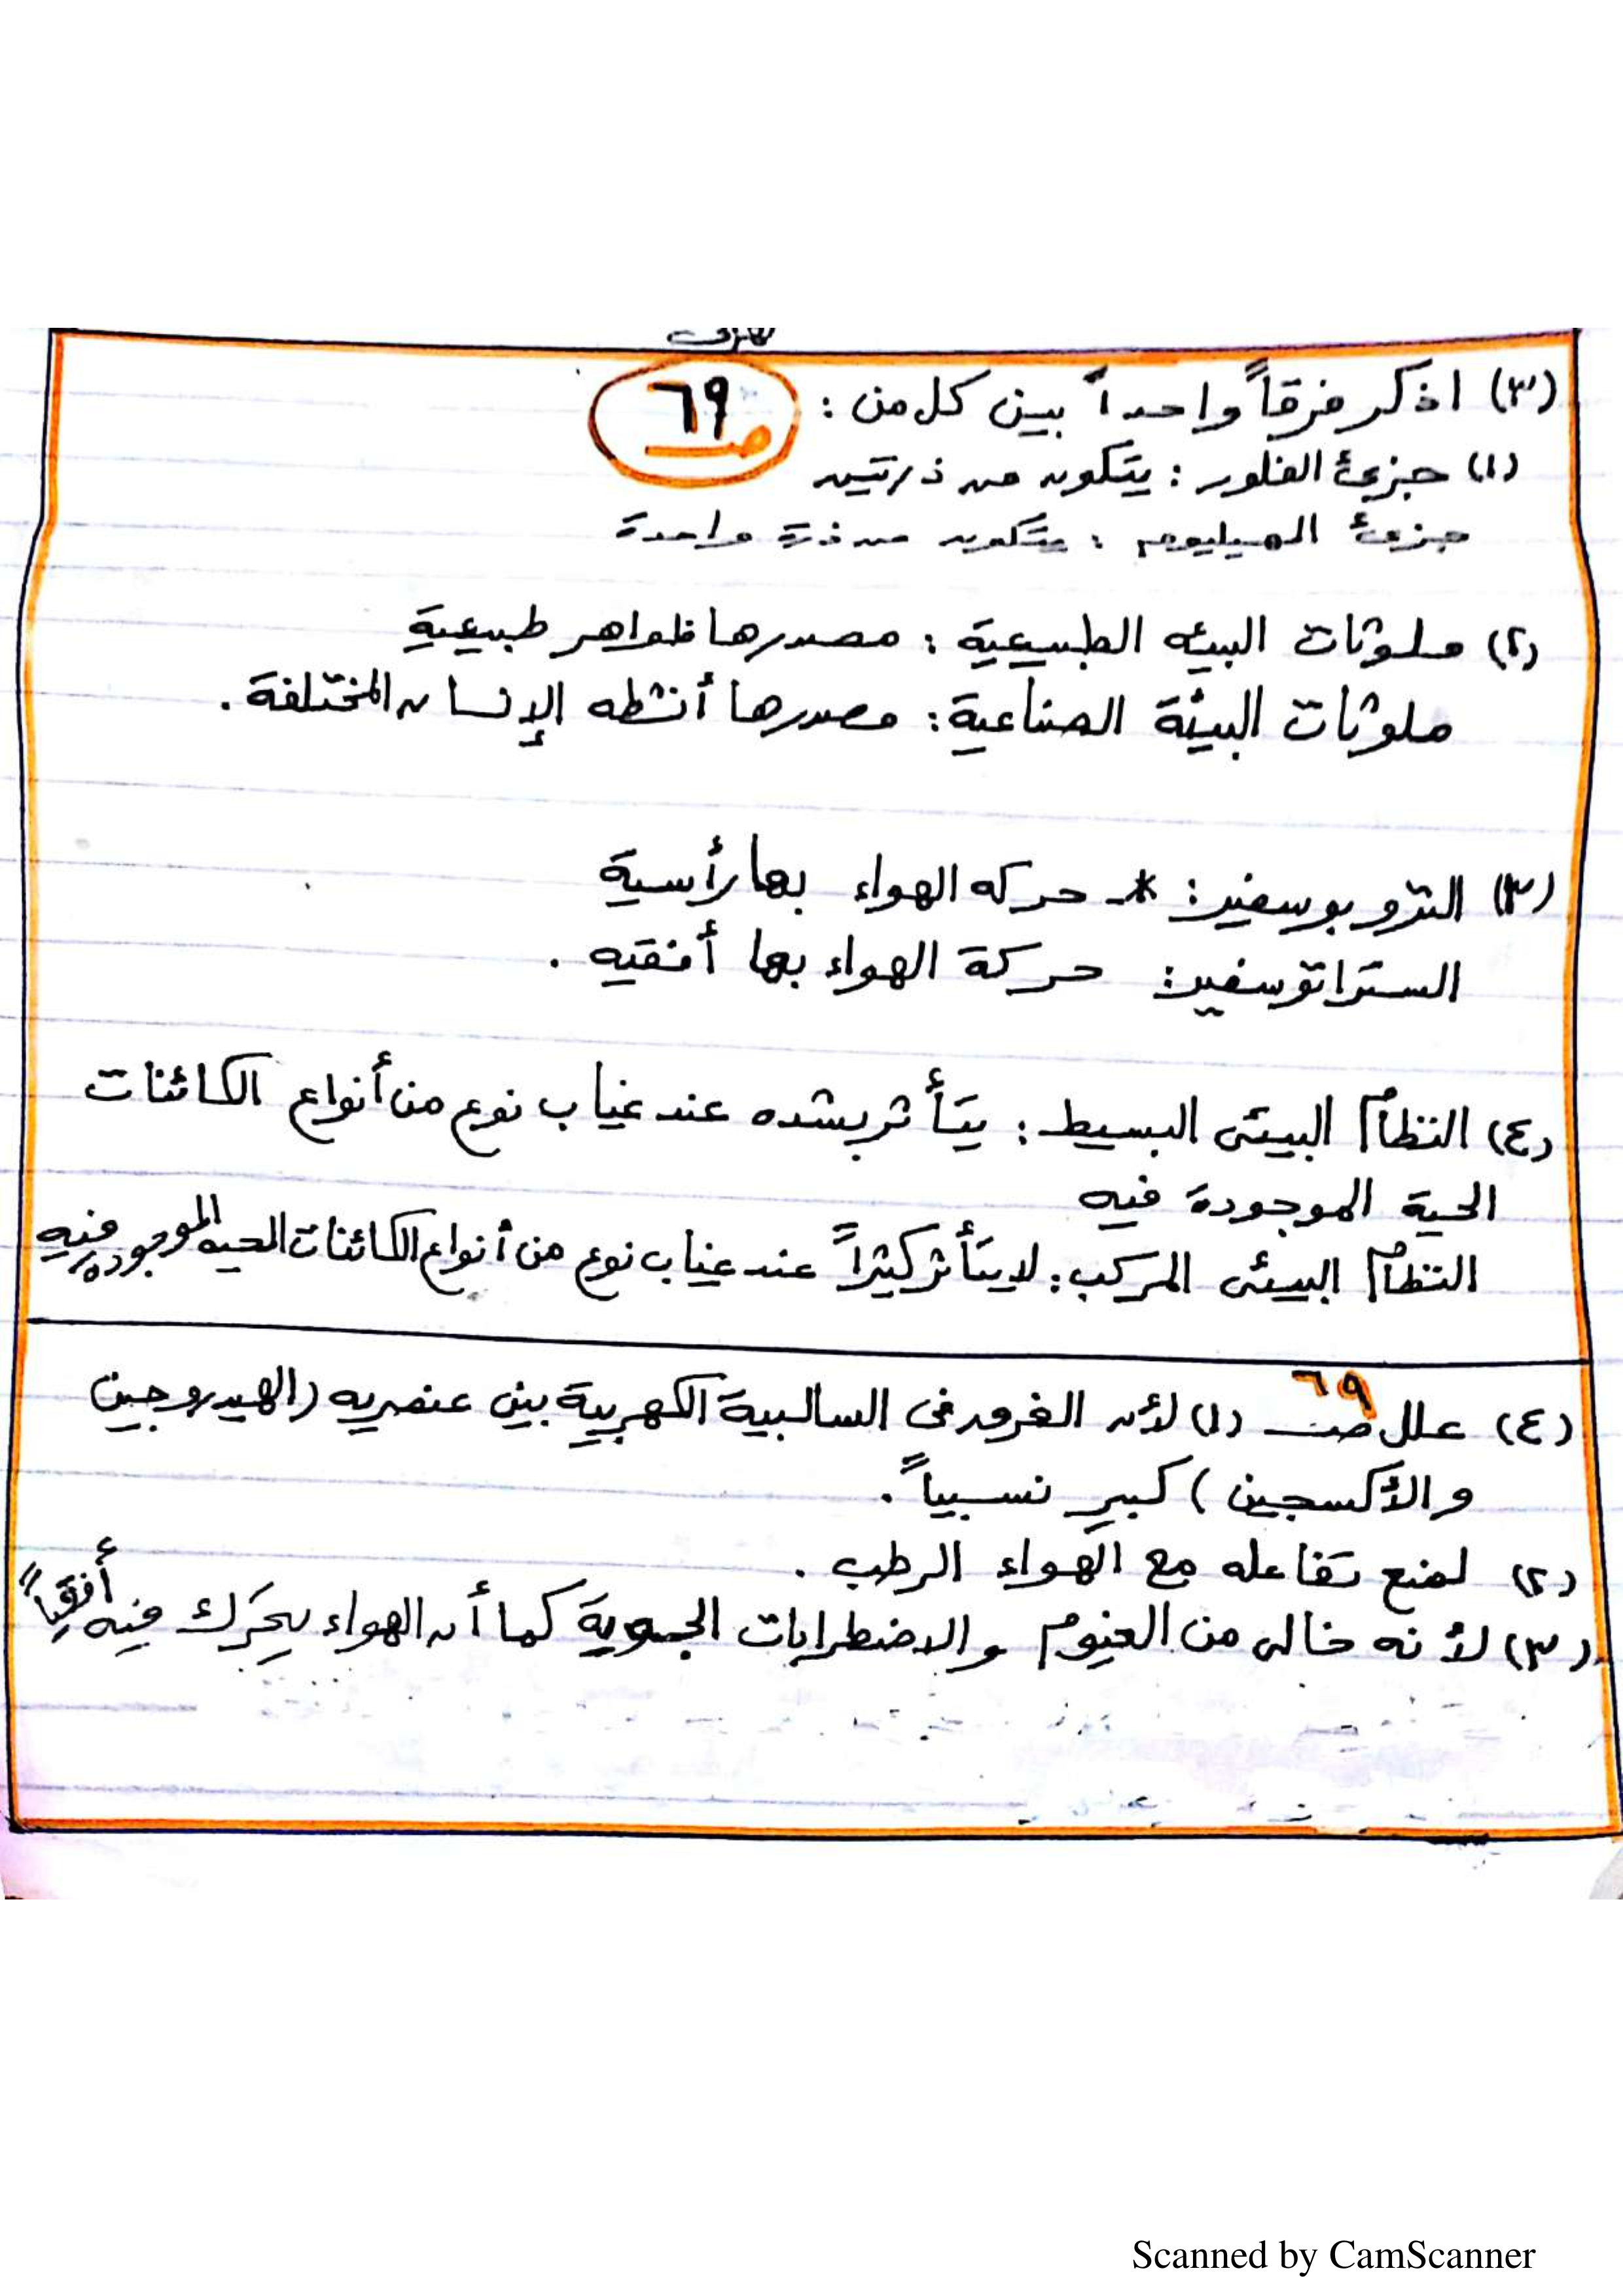 (٣) اذكر فرقاً واحداً بين كل من : ص ٦٩
(١) جزئ الفلور : يتكون من ذرتين
جزئ الهيليوم : يتكون من ذرة واحدة
(٢) ملوثات البيئه الطبيعية : مصدرها ظواهر طبيعية
ملوثات البيئة الصناعية : مصدرها أنشطه الإنسان المختلفة .
(٣) التروبوسفير : * حركه الهواء بها رأسية
الستراتوسفير : حركة الهواء بها أفقيه .
(٤) النظام البيئى البسيط : يتأثر بشده عند غياب نوع من أنواع الكائنات
الحية الموجودة فيه
النظام البيئى المركب : لا يتأثر كثيراً عند غياب نوع من أنواع الكائنات الحيه الموجوده فيه
(٤) علل ص ٦٩ (١) لأن الفرق فى السالبية الكهربية بين عنصريه (الهيدروجين
والأكسجين) كبير نسبياً .
(٢) لمنع تفاعله مع الهواء الرطب .
(٣) لأنه خالى من الغيوم والاضطرابات الجوية كما أن الهواء يتحرك فيه أفقياً
Scanned by CamScanner